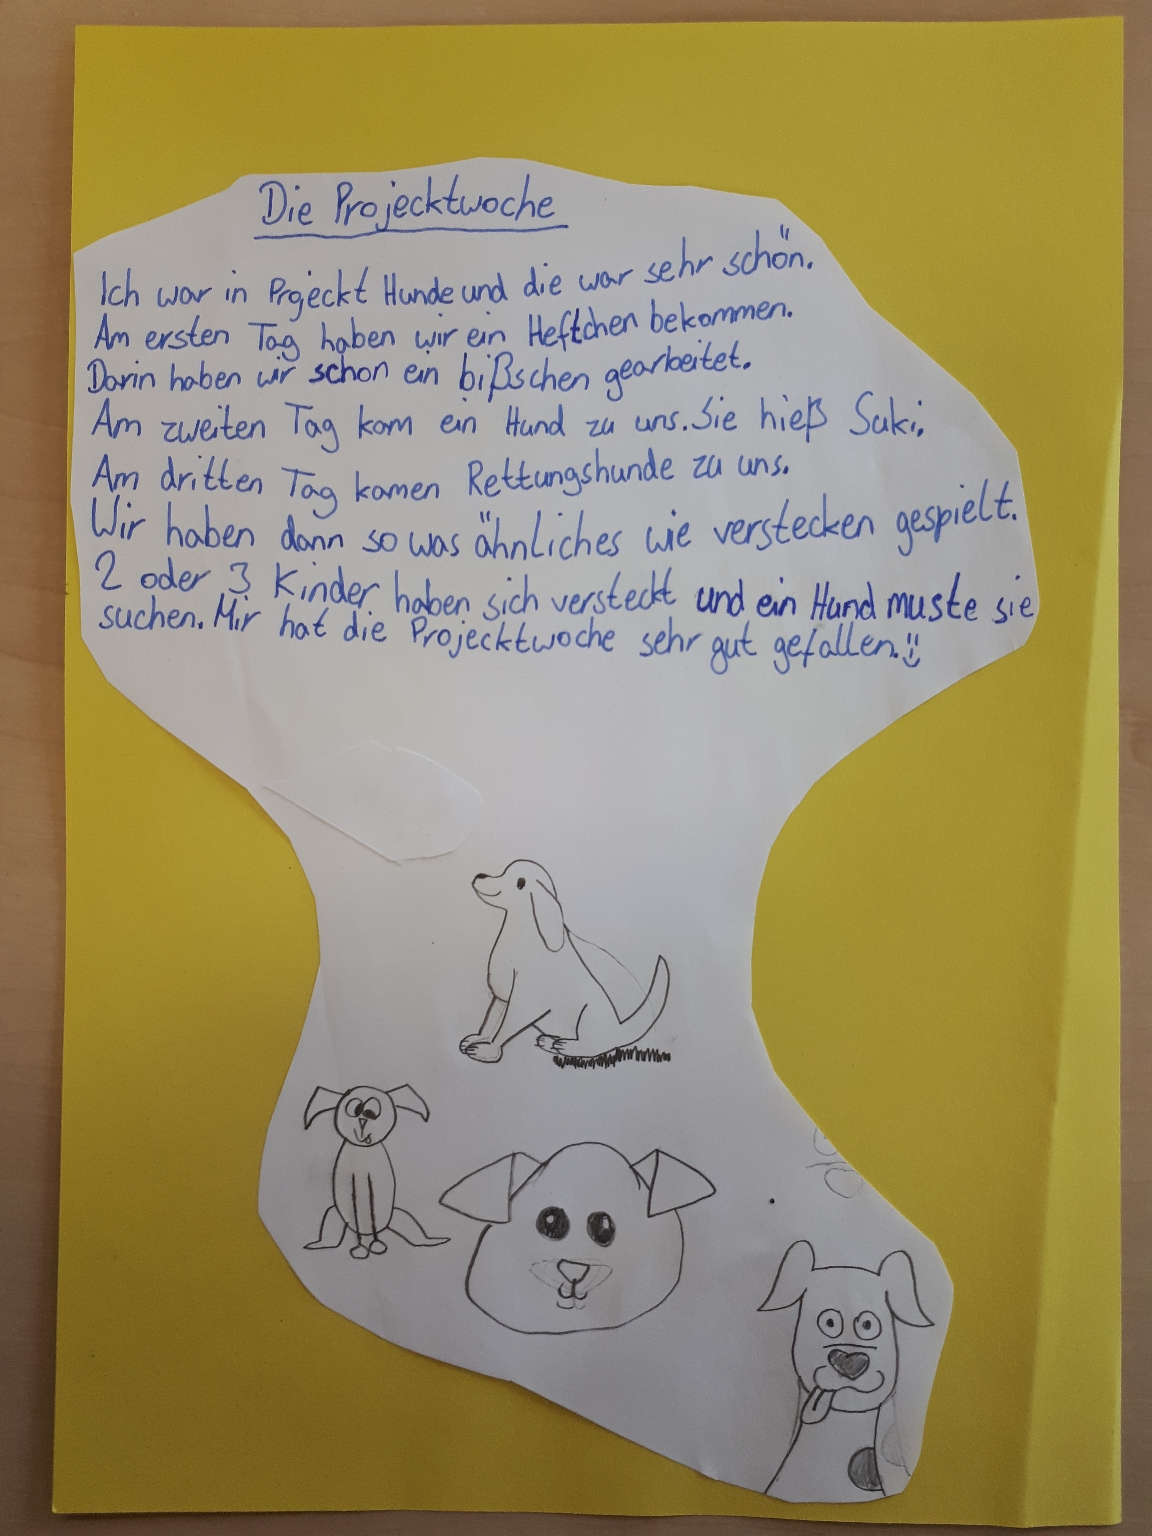 Die Projecktwoche
Ich war in Projeckt Hunde und die war sehr schön.
Am ersten Tag haben wir ein Heftchen bekommen.
Darin haben wir schon ein bißschen gearbeitet.
Am zweiten Tag kam ein Hund zu uns. Sie hieß Suki.
Am dritten Tag kamen Rettungshunde zu uns.
Wir haben dann so was ähnliches wie verstecken gespielt.
2 oder 3 Kinder haben sich versteckt und ein Hund muste sie
suchen. Mir hat die Projecktwoche sehr gut gefallen.